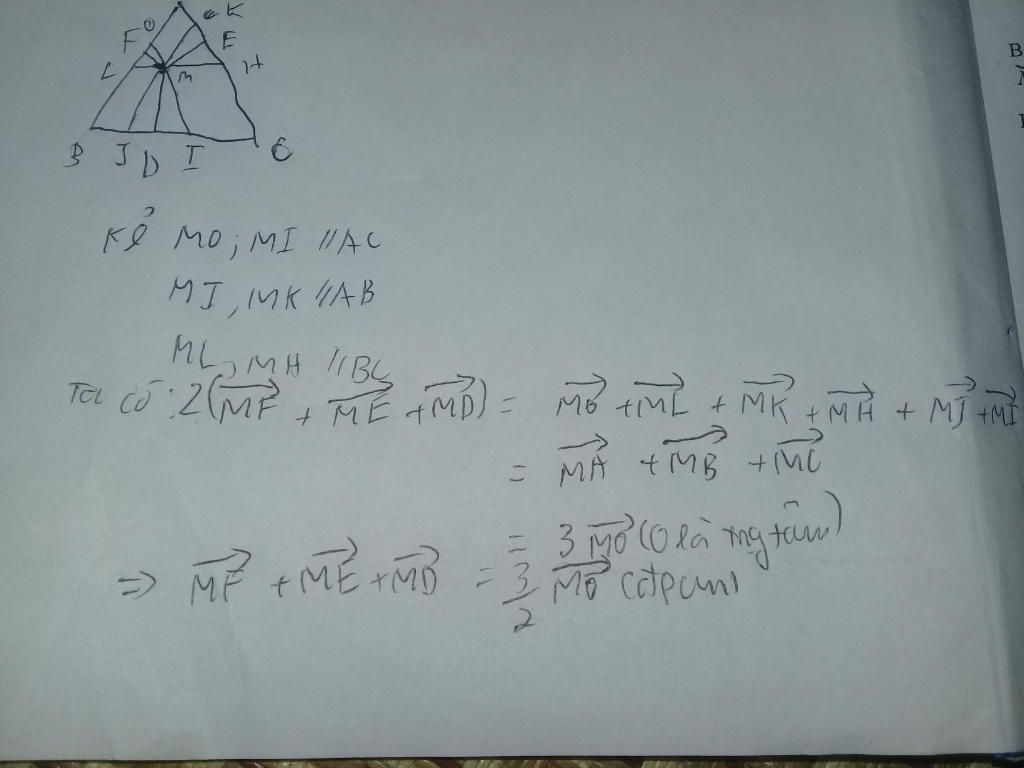 O K
F E
L M H
B J D I C
Kẻ MO; MI // AC
MJ, MK // AB
ML, MH // BC
Ta có: 2(MF + ME + MD) = MO + ML + MK + MH + MJ + MI
= MA + MB + MC
= 3 MO (O là trg tâm)
=> MF + ME + MD = 3/2 MO (đpcm)
B